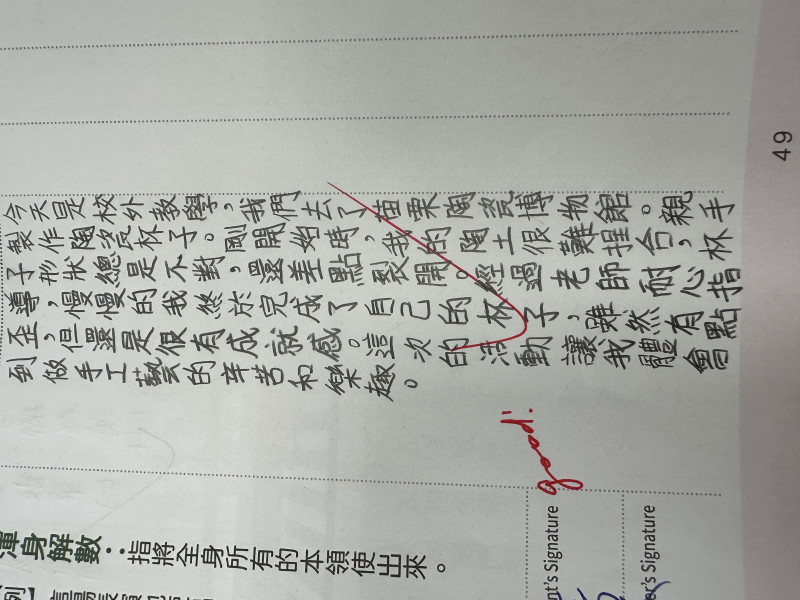 今天是校外教學，我們去了苗栗陶瓷博物館。親手
製作陶瓷杯子。剛開始時，我的陶土很難捏合，杯
子形狀總是不對，還差點裂開。經過老師耐心指
導，慢慢的我終於完成了自己的杯子，雖然有點
歪，但還是很有成就感。這次的活動讓我體會
到做手工藝的辛苦和樂趣。
good!
渾身解數：指將全身所有的本領使出來。
nt's Signature
er's Signature
49